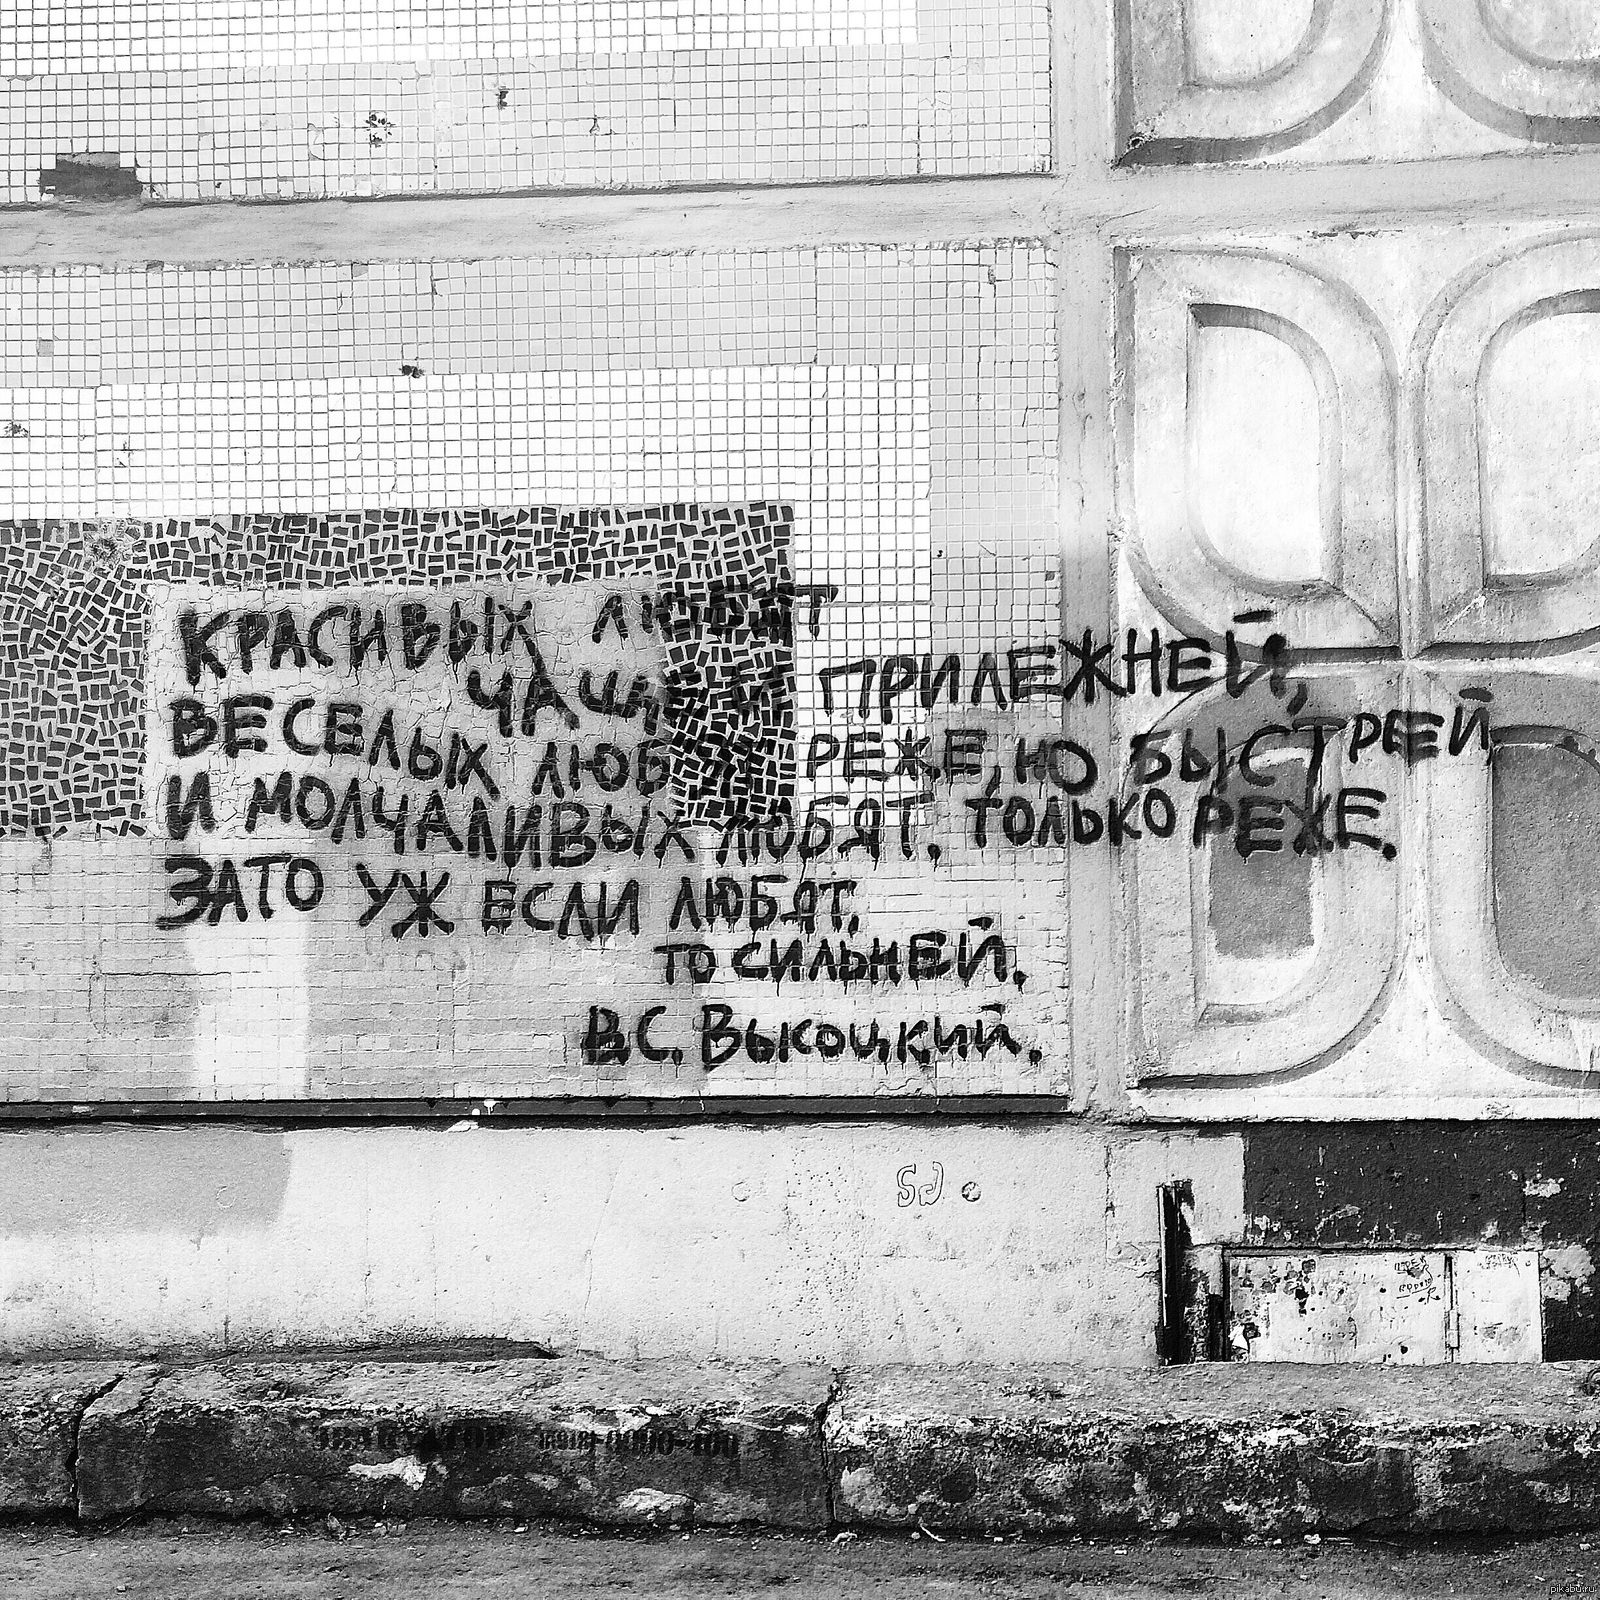 КРАСИВЫХ ЛЮБЯТ
ЧАЩЕ И ПРИЛЕЖНЕЙ,
ВЕСЕЛЫХ ЛЮБЯТ РЕЖЕ, НО БЫСТРЕЙ,
И МОЛЧАЛИВЫХ ЛЮБЯТ, ТОЛЬКО РЕЖЕ.
ЗАТО УЖ ЕСЛИ ЛЮБЯТ,
ТО СИЛЬНЕЙ.
В.С. Высоцкий.
ЭВАКУАТОР
pikabu.ru